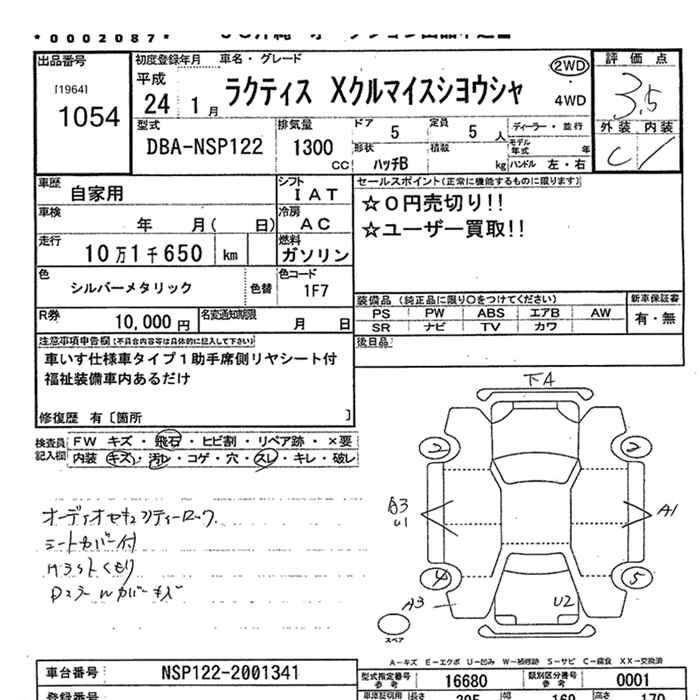 *0002087*
出品番号
[1964]
1054
初度登録年月
平成
24 1月
車名・グレード
ラクティス Xクルマイスシヨウシャ
2WD
4WD
評価点
3.5
外装 内装
C
型式
DBA-NSP122
排気量
1300
CC
ドア 5
定員 5人
形状 ハッチB
積載 kg
ディーラー・並行
モデル年式 年
ハンドル 左・右
車歴 自家用
シフト IAT
車検 年 月( 日)
冷房 AC
走行 10万1千650 km
燃料 ガソリン
色 シルバーメタリック
色替
色コード 1F7
R券 10,000円
名変通知期限 月 日
セールスポイント(正常に機能するものに限ります)
☆0円売切り!!
☆ユーザー買取!!
装備品 (純正品に限り○をつけてください)
PS PW ABS エアB AW
SR ナビ TV カワ
新車保証書
有・無
後日品
注意事項申告欄[不具合内容等は具体的に記入して下さい]
車いす仕様車タイプ1助手席側リヤシート付
福祉装備車内あるだけ
修復歴 有〔箇所 〕
検査員記入欄
FW キズ・飛石・ヒビ割・リペア跡・×要
内装 キズ・汚レ・コゲ・穴・スレ・キレ・破レ
オーディオセキュリティーロック
シートカバー付
下A
2
2
A3
U1
A1
4
5
A3
U2
スペア
A-キズ E-エクボ U-凹み W-補修跡 S-サビ C-腐食 XX-交換済
車台番号 NSP122-2001341
型式指定番号 参考 16680
類別区分番号 参考 0001
登録番号
長さ 395
幅 169
高さ 170